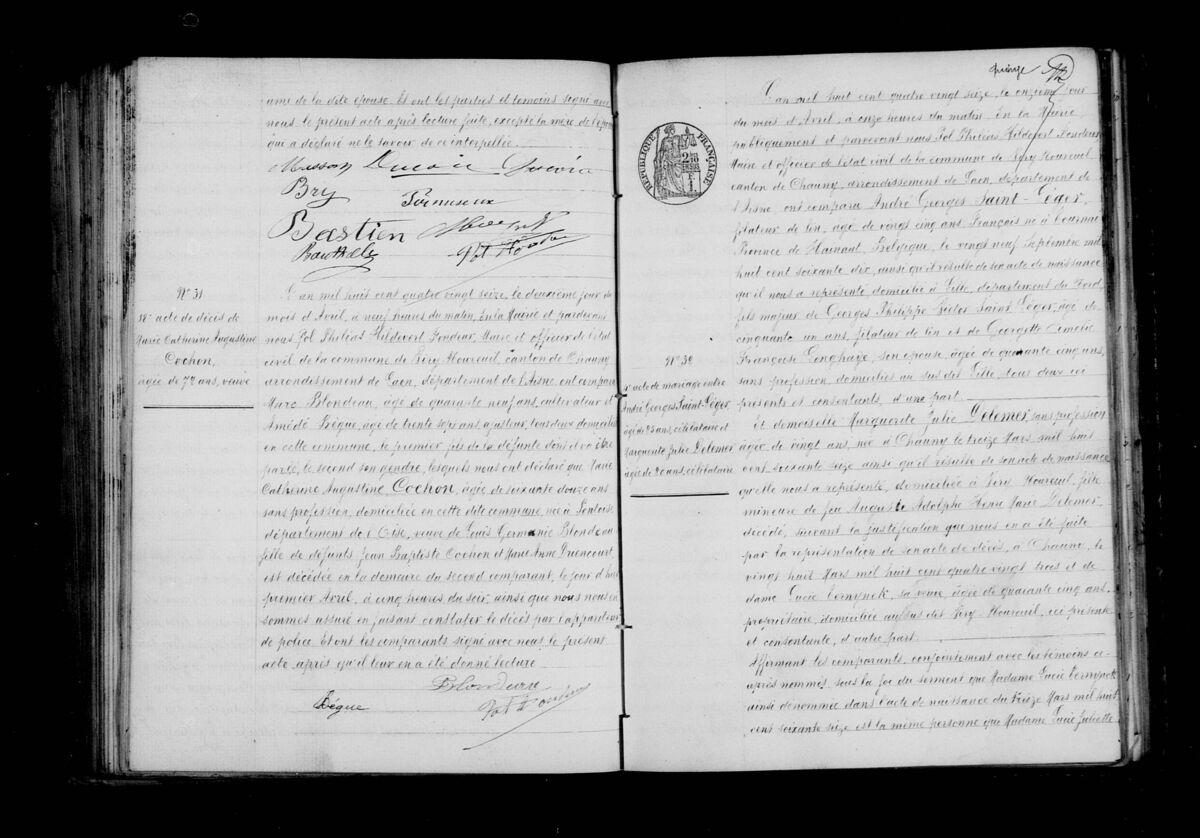 âme de la dite épouse. Et ont les parties et témoins signé avec
nous le présent acte après lecture faite, excepté la mère de l'époux
qui a déclaré ne le savoir de ce interpellée.
Bry
Bastien
N° 31
18e acte de décès de
Marie Catherine Augustine
Cochon,
âgée de 72 ans, veuve
L'an mil huit cent quatre vingt seize, le deuxième jour du
mois d'Avril, à neuf heures du matin, En la Mairie et pardevant
nous Pol Philéas Hildevert Fondeur, Maire et officier de l'état
civil de la commune de Viry Noureuil, canton de Chauny
arrondissement de Laon, département de l'Aisne, ont comparu
Marc Blondeau, âgé de quarante neuf ans, cultivateur et
Amédé Bègue, âgé de trente sept ans, ajusteur, tous deux domiciliés
en cette commune, le premier fils de la défunte dont il va être
parlé, le second son gendre, lesquels nous ont déclaré que Marie
Catherine Augustine Cochon, âgée de soixante douze ans
sans profession, domiciliée en cette dite commune, née à Pontoise
département de l'Oise, veuve de Louis Germanie Blondeau
fille de défunts Jean Baptiste Cochon et Marie Anne
est décédée en la demeure du second comparant, le jour d'hier
premier Avril, à cinq heures du soir, ainsi que nous nous en
sommes assuré en faisant constater le décès par l'appariteur
de police. Et ont les comparants signé avec nous le présent
acte après qu'il leur en a été donné lecture
Blondeau
Bègue Pol Fondeur
quinze
RÉPUBLIQUE FRANÇAISE
L'an mil huit cent quatre vingt seize, le onzième jour
du mois d'Avril, à onze heures du matin. En la Mairie,
publiquement et pardevant nous Pol Philéas Hildevert Fondeur
Maire et officier de l'état civil de la commune de Viry Noureuil
canton de Chauny, arrondissement de Laon, département de
l'Aisne, ont comparu André Georges Saint-Léger,
filateur de lin, âgé de vingt cinq ans, Français né à
Province de Hainaut, Belgique, le vingt neuf Septembre mil
huit cent soixante dix, ainsi qu'il résulte de son acte de naissance
qu'il nous a représenté, domicilié à Lille, département du Nord
fils majeur de Georges Philippe Victor Saint Léger, âgé de
cinquante un ans, filateur de lin et de Georgette
Françoise Longhaye, son épouse, âgée de quarante cinq ans,
sans profession, domiciliés au sus dit Lille, tous deux ici
présents et consentants, d'une part.
N° 32
acte de mariage entre
André Georges Saint-Léger
âgé de 25 ans, célibataire et
Marguerite Julie Delemer
âgée de 20 ans, célibataire
Et demoiselle Marguerite Julie Delemer, sans profession
âgée de vingt ans, née à Chauny le treize Mars mil huit
cent soixante seize ainsi qu'il résulte de son acte de naissance
qu'elle nous a représenté, domiciliée à Viry Noureuil, fille
mineure de feu Auguste Adolphe Henri Marie Delemer,
décédé, suivant la justification que nous en a été faite
par la représentation de son acte de décès, à Chauny, le
vingt huit Mars mil huit cent quatre vingt trois et de
dame Lucie Cernynck, sa veuve, âgée de quarante cinq ans,
propriétaire, domiciliée au sus dit Viry Noureuil, ici présente
et consentante, d'autre part.
Affirmant les comparants, conjointement avec les témoins ci-
après nommés, sous la foi du serment que Madame Lucie Cernynck
ainsi dénommée dans l'acte de naissance du treize Mars mil huit
cent soixante seize est la même personne que Madame Lucie Juliette